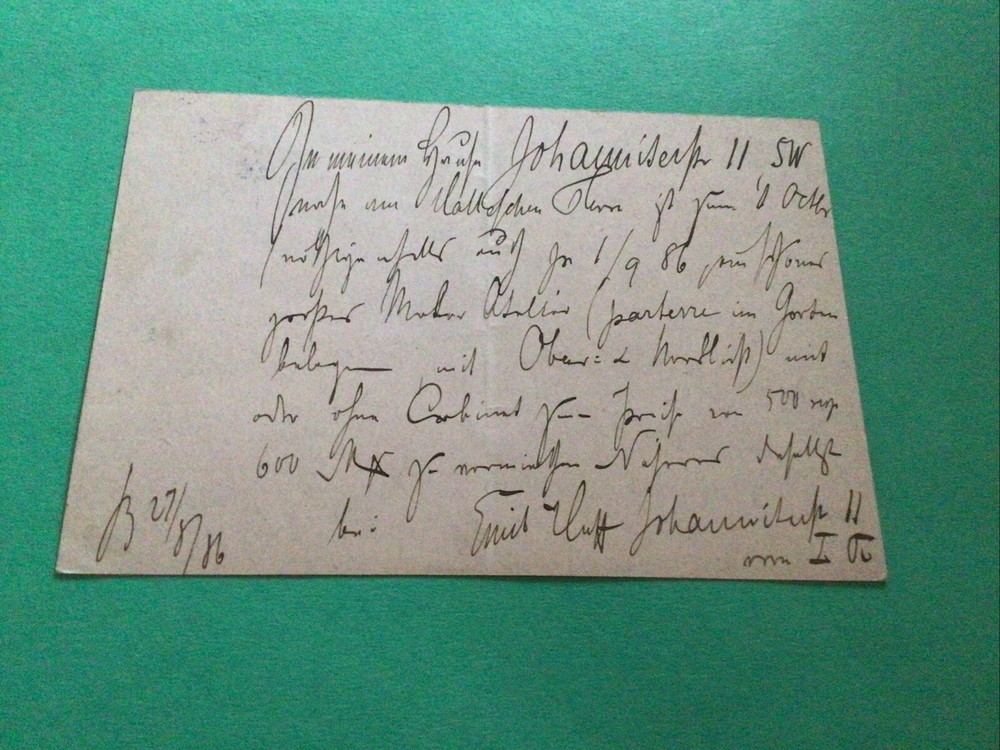 In meinem Hause Johanniterstr 11 SW
nahe am Halleschen Thore ist zum 1 Octbr
nöthigenfalls auch pr 1/9 86 ein schönes
großes Maler Atelier (parterre im Garten
belegen mit Ober= & Nordlicht) mit
oder ohne Cabinet zum Preise von 500 resp
600 Mk zu vermiethen Näheres daselbst
bei Emil Johanniterstr 11
vorn I Tr
B 27/8/86